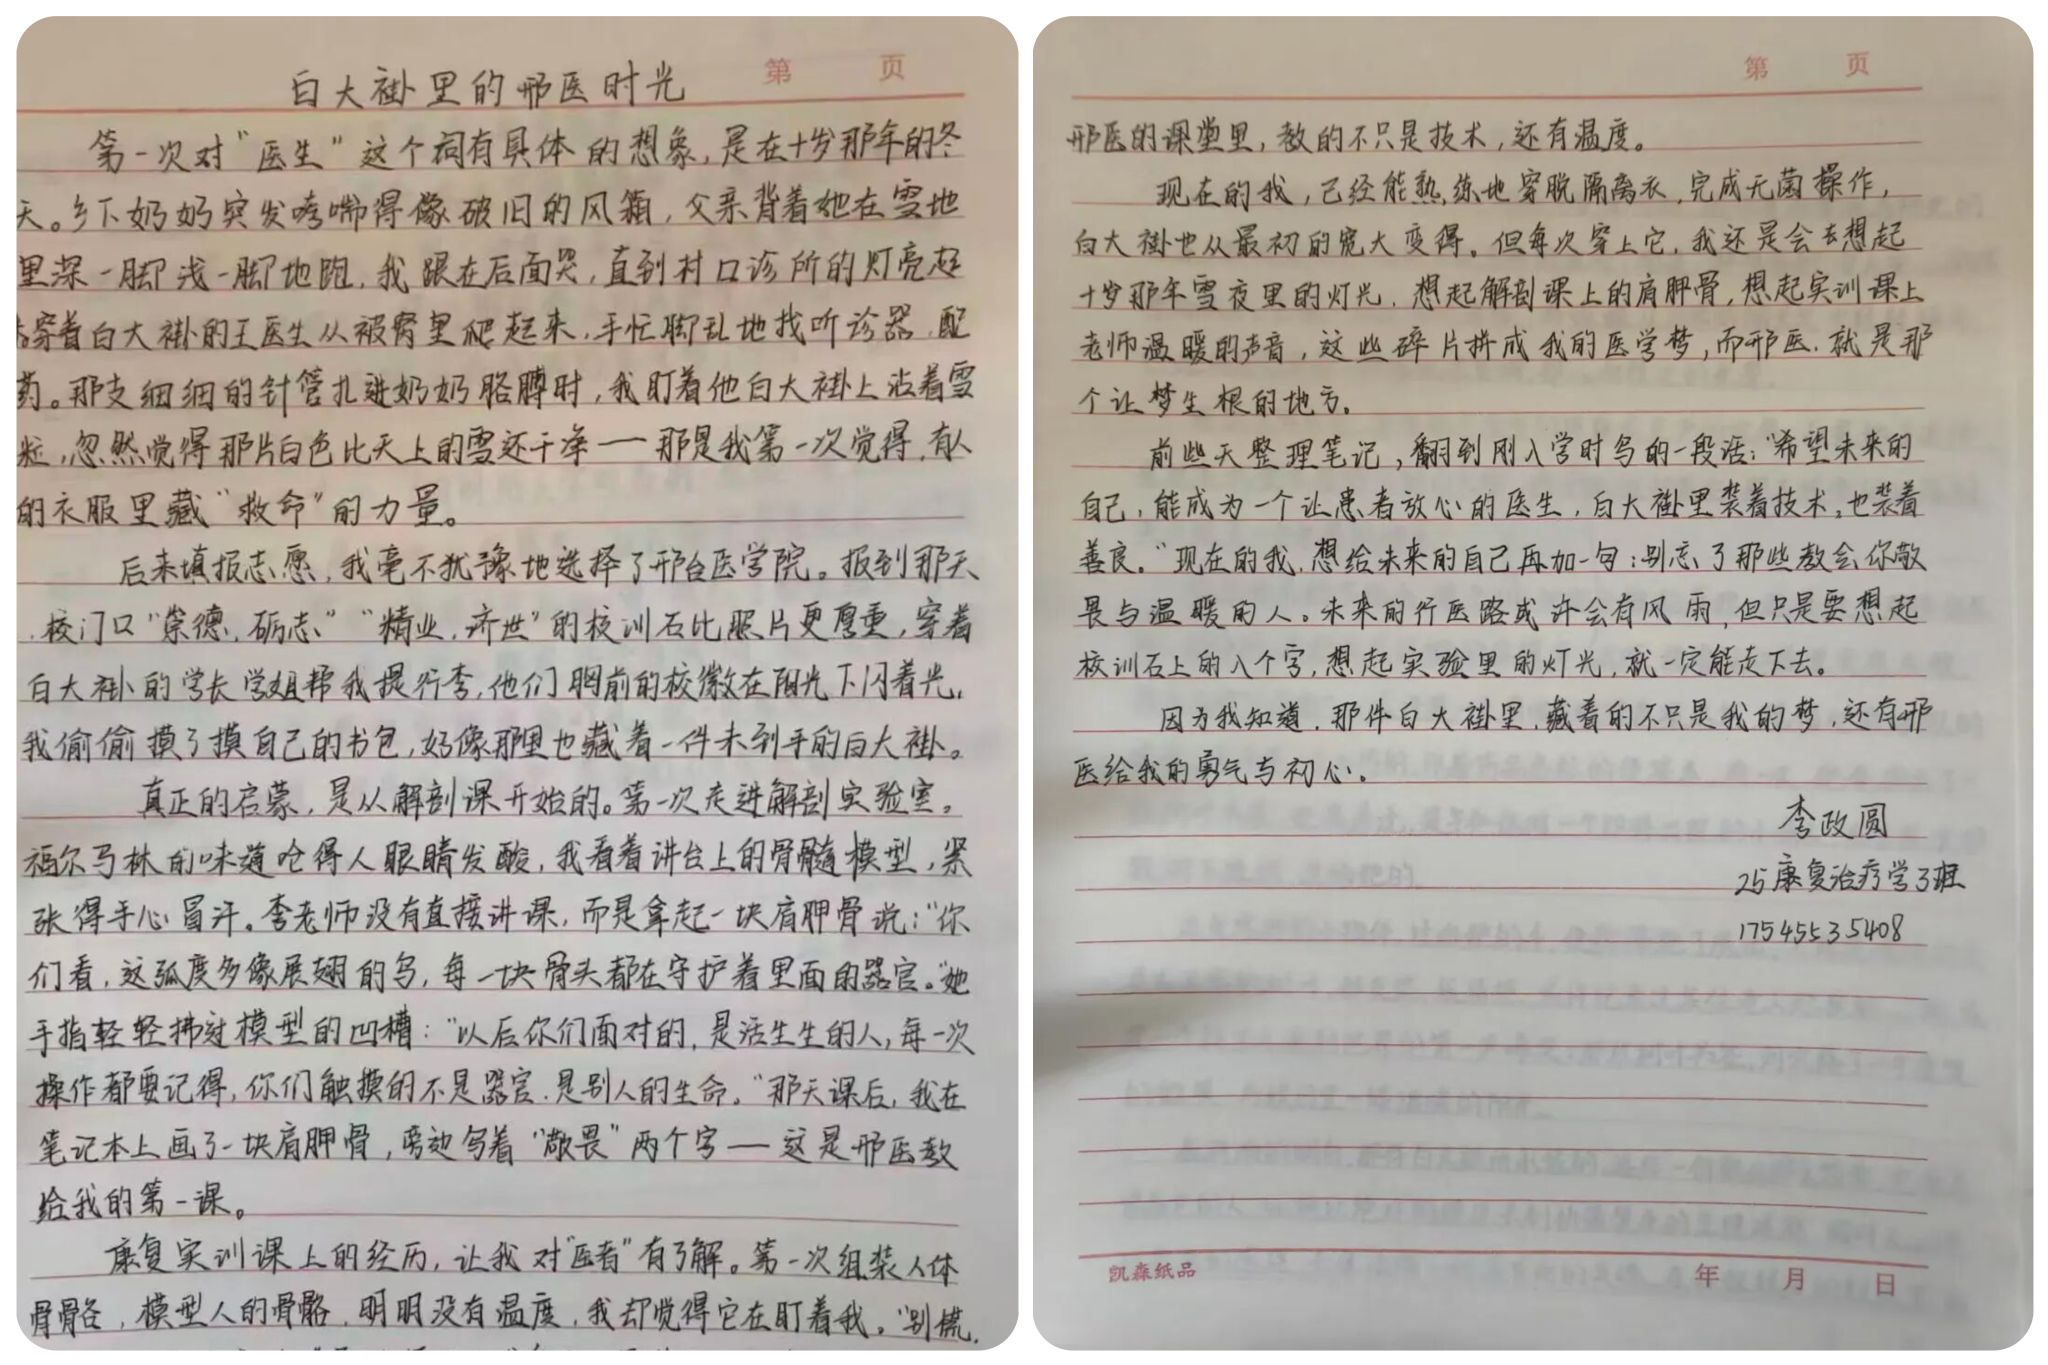 第 页
白大褂里的邢医时光
第一次对“医生”这个词有具体的想象，是在十岁那年的冬
天。乡下奶奶突发哮喘得像破旧的风箱，父亲背着她在雪地
里深一脚浅一脚地跑，我跟在后面哭，直到村口诊所的灯亮起
穿着白大褂的王医生从被窝里爬起来，手忙脚乱地找听诊器，配
药。那支细细的针管扎进奶奶胳膊时，我盯着他白大褂上沾着雪
粒，忽然觉得那片白色比天上的雪还干净——那是我第一次觉得，有人
的衣服里藏“救命”的力量。
后来填报志愿，我毫不犹豫地选择了邢台医学院。报到那天
，校门口“崇德，砺志”“精业，济世”的校训石比照片更厚重，穿着
白大褂的学长学姐帮我提行李，他们胸前的校徽在阳光下闪着光，
我偷偷摸了摸自己的书包，好像那里也藏着一件未到手的白大褂。
真正的启蒙，是从解剖课开始的。第一次走进解剖实验室。
福尔马林的味道呛得人眼睛发酸，我看着讲台上的骨髓模型，紧
张得手心冒汗。李老师没有直接讲课，而是拿起一块肩胛骨说：“你
们看，这弧度多像展翅的鸟，每一块骨头都在守护着里面的器官。”她
手指轻轻拂过模型的凹槽：“以后你们面对的，是活生生的人，每一次
操作都要记得，你们触摸的不是器官，是别人的生命。”那天课后，我在
笔记本上画了一块肩胛骨，旁边写着“敬畏”两个字——这是邢医教
给我的第一课。
康复实训课上的经历，让我对“医者”有了解。第一次组装人体
骨骼，模型人的骨骼，明明没有温度，我却觉得它在盯着我。“别慌，
第 页
邢医的课堂里，教的不只是技术，还有温度。
现在的我，已经能熟练地穿脱隔离衣，完成无菌操作，
白大褂也从最初的宽大变得。但每次穿上它，我还是会去想起
十岁那年雪夜里的灯光，想起解剖课上的肩胛骨，想起实训课上
老师温暖的声音，这些碎片拼成我的医学梦，而邢医，就是那
个让梦生根的地方。
前些天整理笔记，翻到刚入学时写的一段话：“希望未来的
自己，能成为一个让患者放心的医生，白大褂里装着技术，也装着
善良。”现在的我，想给未来的自己再加一句：别忘了那些教会你敬
畏与温暖的人。未来的行医路或许会有风雨，但只是要想起
校训石上的八个字，想起实验里的灯光，就一定能走下去。
因为我知道，那件白大褂里，藏着的不只是我的梦，还有邢
医给我的勇气与初心。
李政圆
25康复治疗学3班
17545535408
凯森纸品 年 月 日